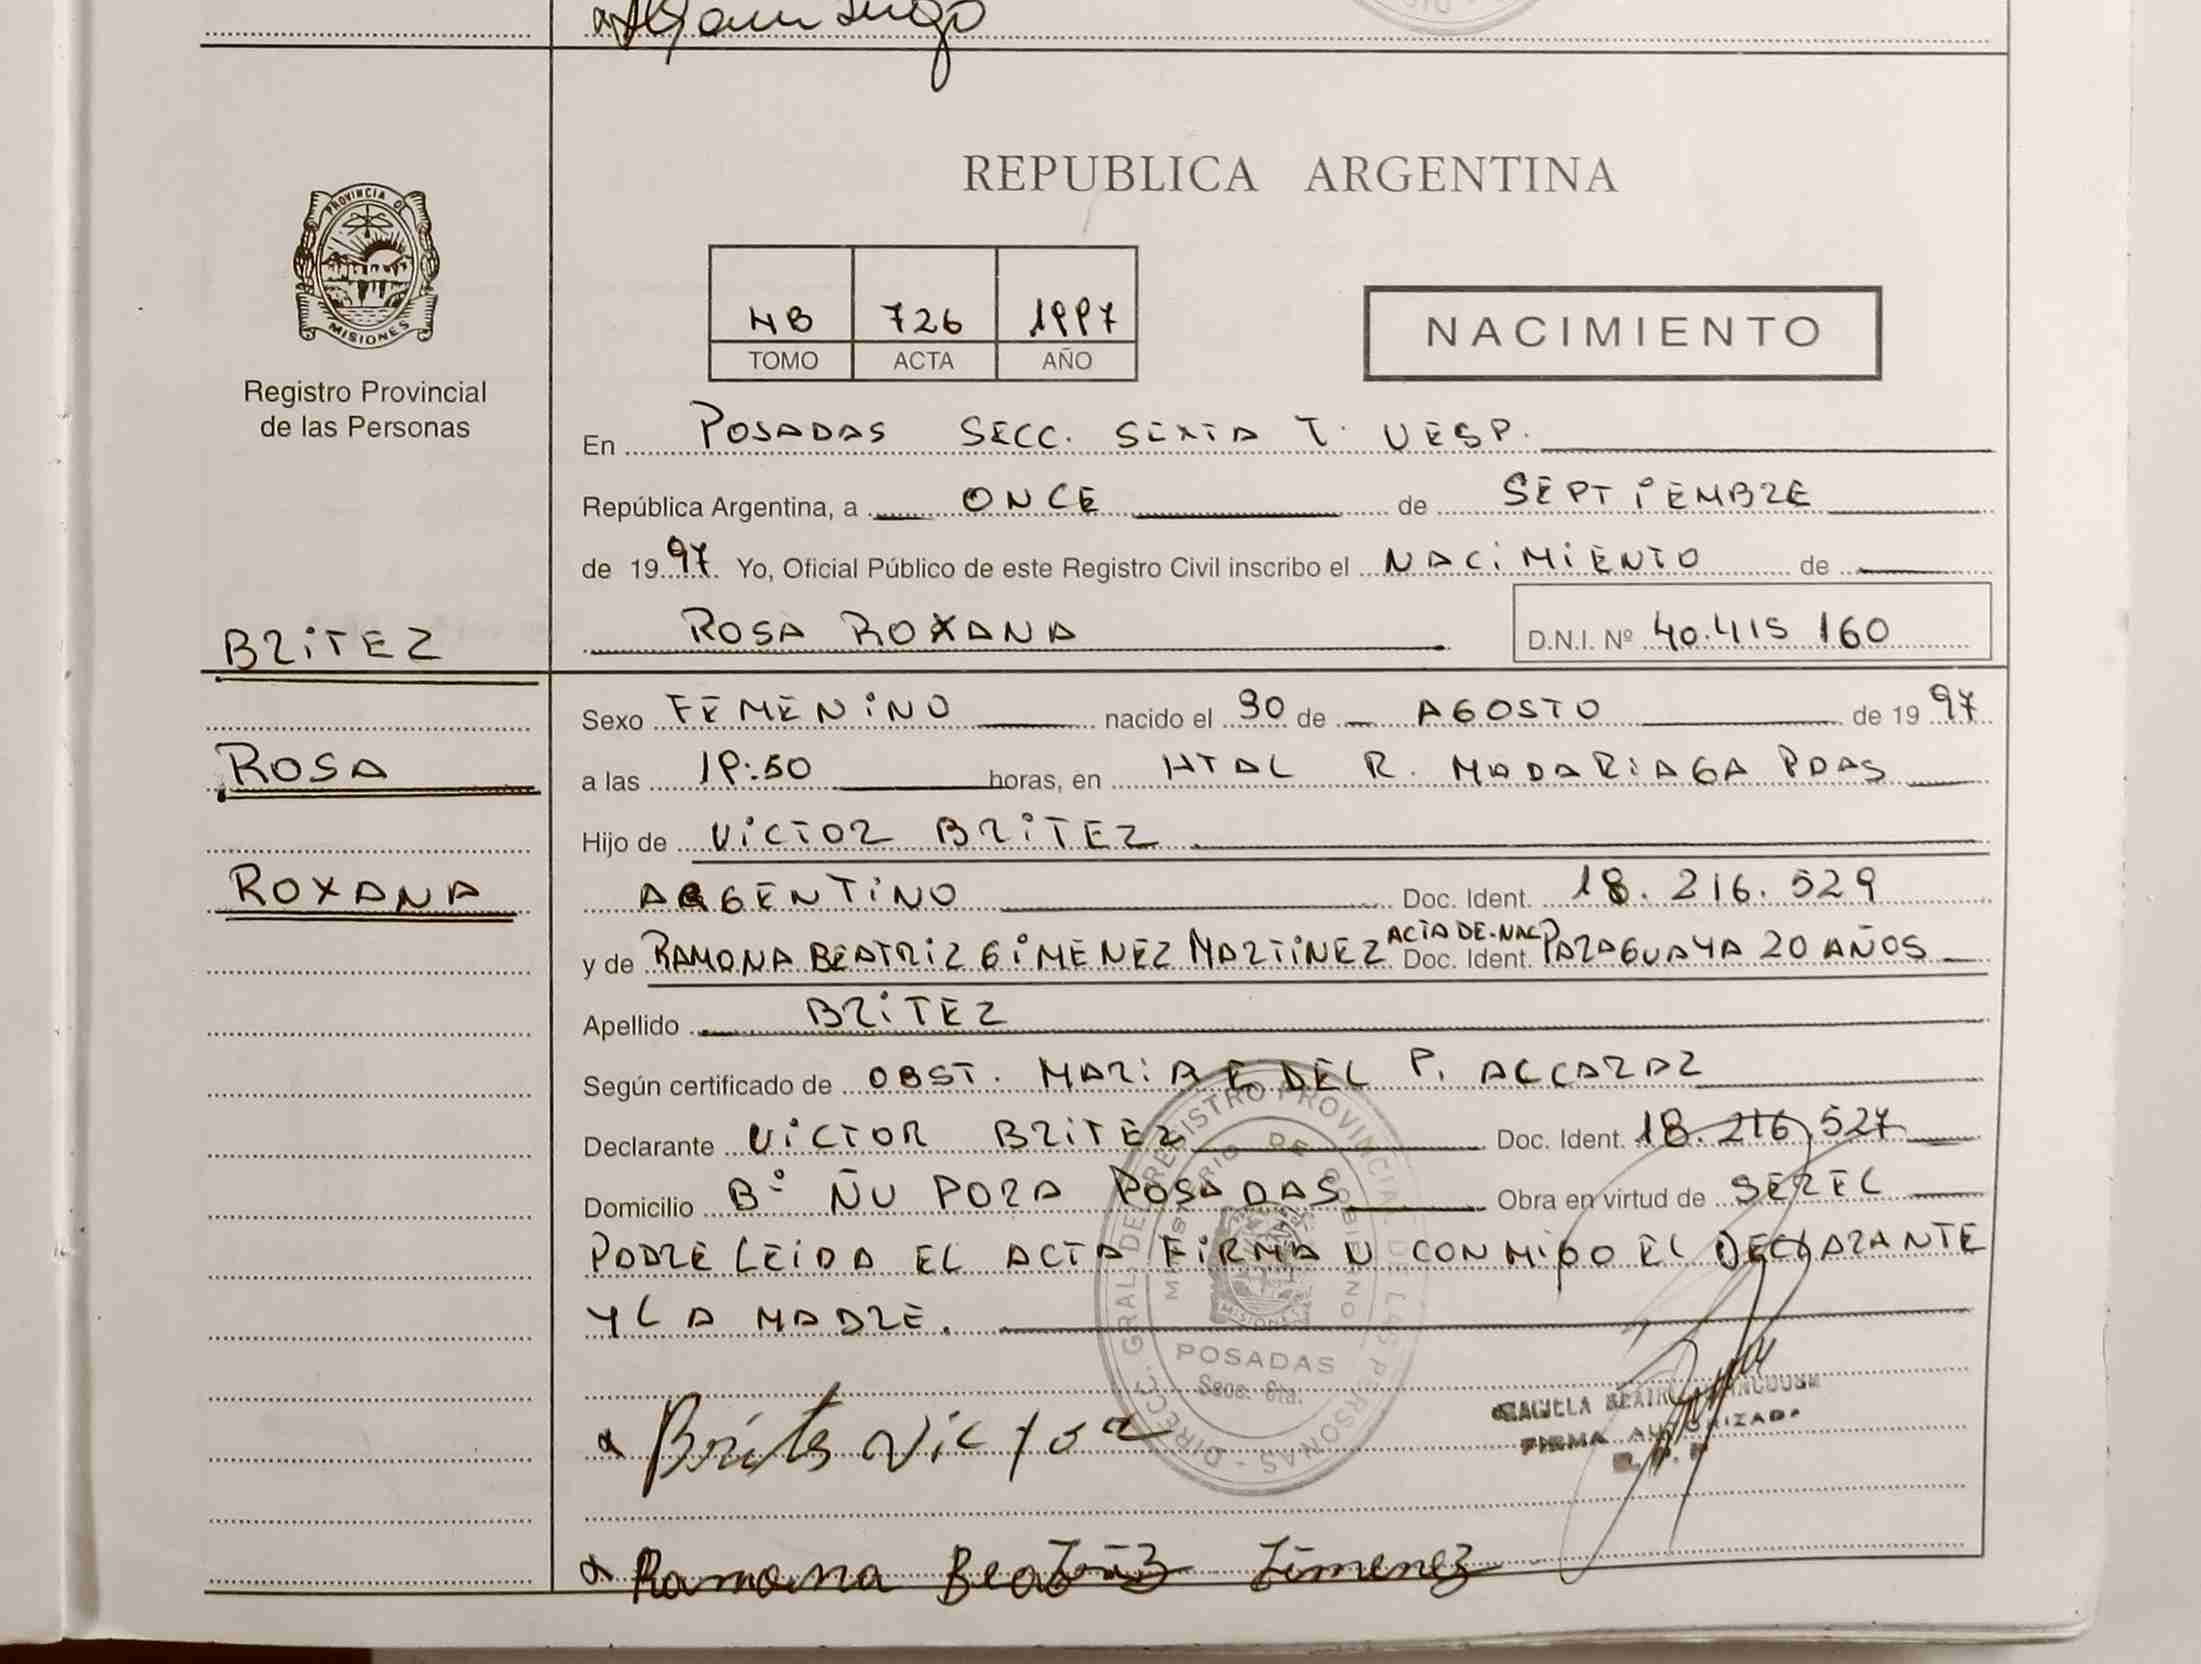 PROVINCIA D
MISIONES
Registro Provincial
de las Personas
REPUBLICA ARGENTINA
NB 726 1997
TOMO ACTA AÑO
NACIMIENTO
En POSADAS SECC. SEXTA T. VESP.
República Argentina, a ONCE de SEPTIEMBRE
de 1997 Yo, Oficial Público de este Registro Civil inscribo el NACIMIENTO de
ROSA ROXANA D.N.I. Nº 40.415 160
BRITEZ
ROSA
ROXANA
Sexo FEMENINO nacido el 30 de AGOSTO de 1997
a las 19:50 horas, en HTAL R. MADARIAGA PDAS
Hijo de VICTOR BRITEZ
ARGENTINO Doc. Ident. 18.216.529
y de RAMONA BEATRIZ GIMENEZ MARTINEZ ACTA DE NAC Doc. Ident. PARAGUAYA 20 AÑOS
Apellido BRITEZ
Según certificado de OBST. MARIA E. DEL P. ALCARAZ
Declarante VICTOR BRITEZ Doc. Ident. 18.216.527
Domicilio Bº ÑU PORA POSADAS Obra en virtud de SEREL
PADRE LEIDA EL ACTA FIRMAN CONMIGO EL DECLARANTE
Y LA MADRE.
DIRECC. GRAL. DE REGISTRO PROVINCIAL DE LAS PERSONAS
MINISTERIO DE GOBIERNO
MISIONES
POSADAS
Secc. 6ta.
Brites Victor
FIRMA AUTORIZADA
Ramona Beatriz Jimenez